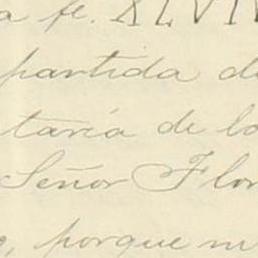 a fe. XLVIV
partida d
taría de lo
Señor Flor
, porque m